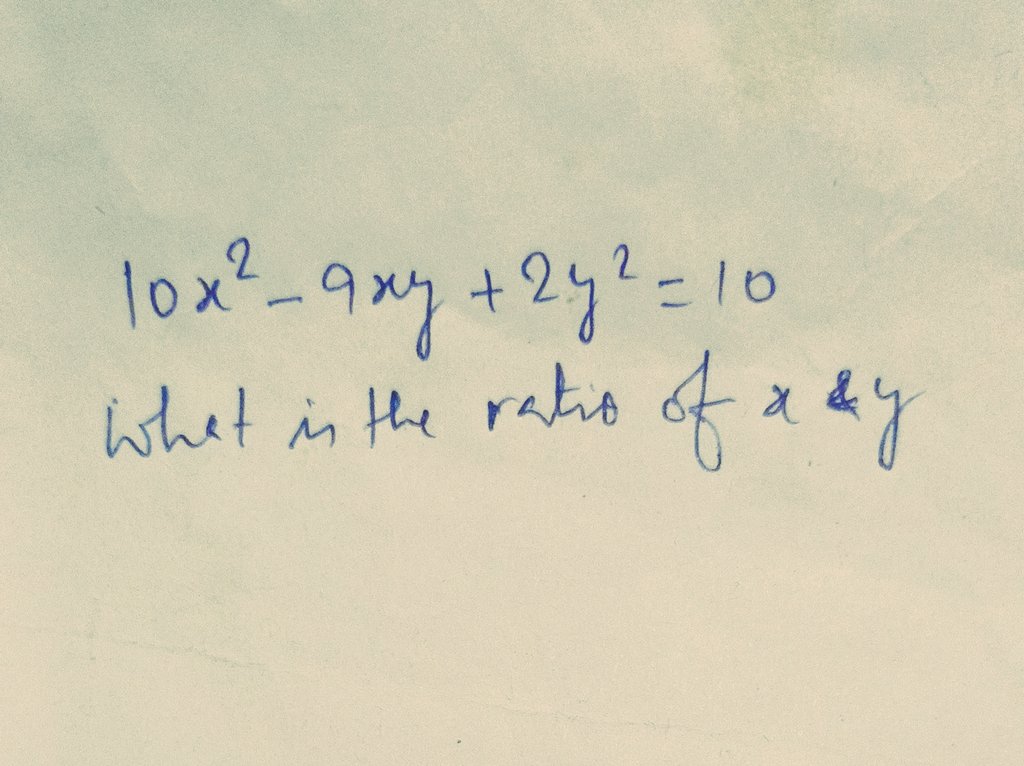 10x² - 9xy + 2y² = 10
What is the ratio of x & y